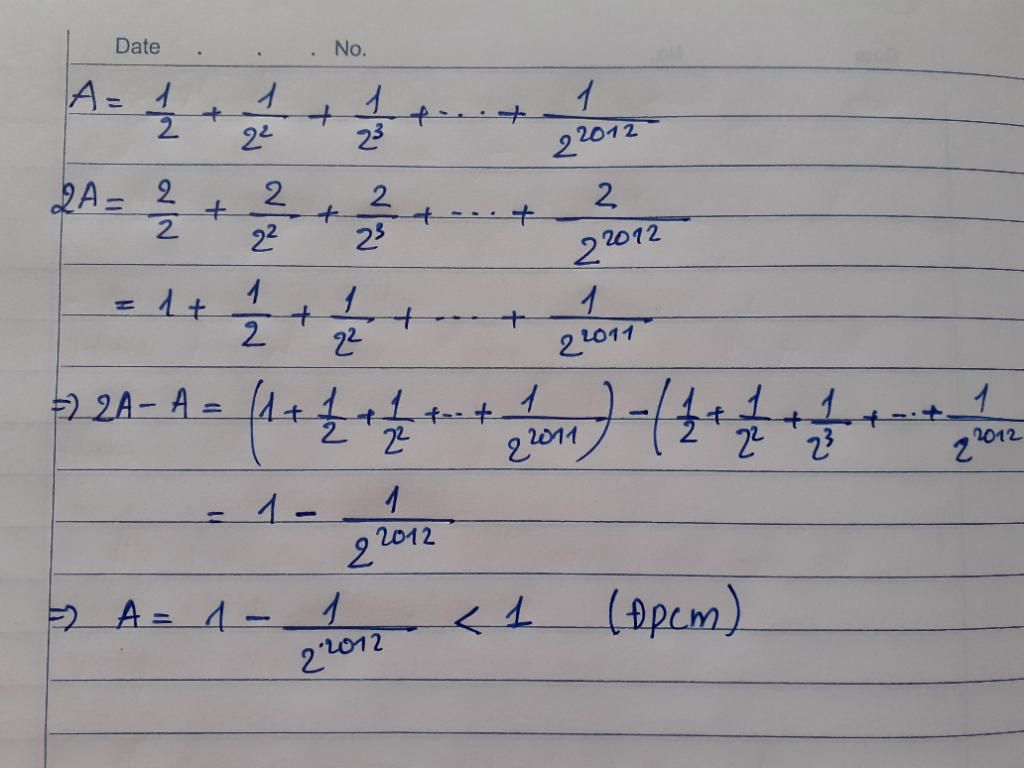 Date . . . No.
A = 1/2 + 1/2² + 1/2³ + ... + 1/2²⁰¹²
2A = 2/2 + 2/2² + 2/2³ + ... + 2/2²⁰¹²
= 1 + 1/2 + 1/2² + ... + 1/2²⁰¹¹
=> 2A - A = (1 + 1/2 + 1/2² + ... + 1/2²⁰¹¹) - (1/2 + 1/2² + 1/2³ + ... + 1/2²⁰¹²
= 1 - 1/2²⁰¹²
=> A = 1 - 1/2²⁰¹² < 1 (Đpcm)